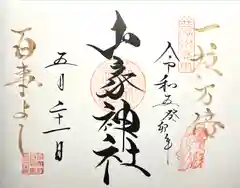 一粒万倍
令和五癸卯年
山家神社
五月二十一日
百事よし